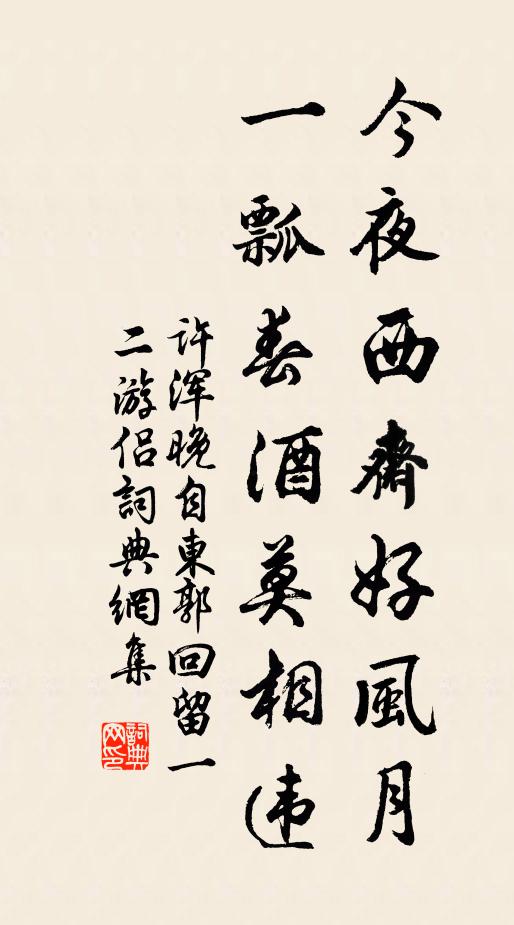 今夜西齋好風月
一瓢春酒莫相违
许浑晚自東郭回留一
二游侣詞典網集
詞典
网印